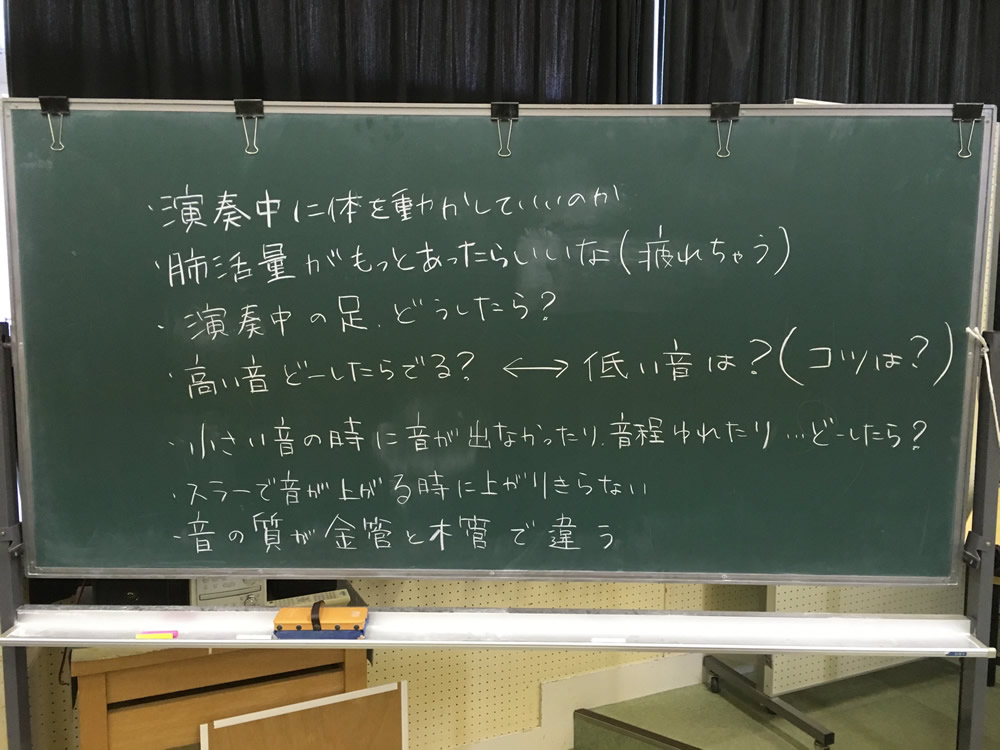 ・演奏中に体を動かしていいのか
・肺活量がもっとあったらいいな(疲れちゃう)
・演奏中の足、どうしたら?
・高い音どーしたらでる? ⟷ 低い音は?(コツは?)
・小さい音の時に音が出なかったり、音程ゆれたり…どーしたら?
・スラーで音が上がる時に上がりきらない
・音の質が金管と木管で違う